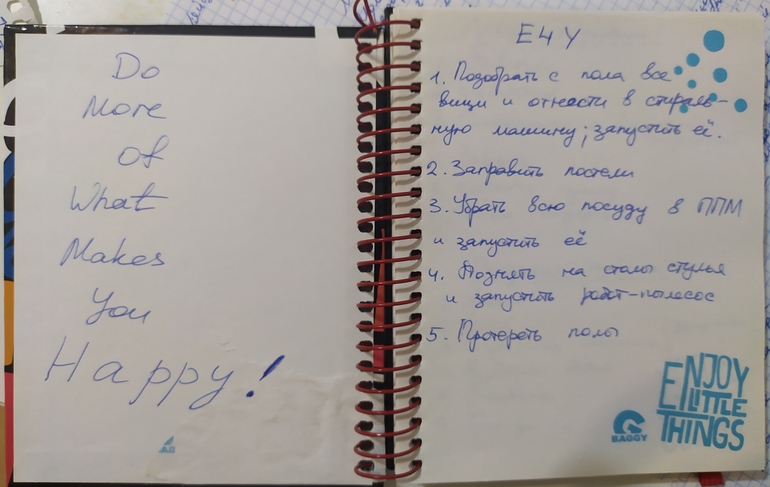 Do
More
Of
What
Makes
You
Happy!
ЕЧУ
1. Подобрать с пола все
вещи и отнести в стираль-
ную машину; запустить её.
2. Заправить постели
3. Убрать всю посуду в ППМ
и запустить её
4. Поднять на столы стулья
и запустить робот-пылесос
5. Протереть полы
ENJOY
LITTLE
THINGS
BAGGY